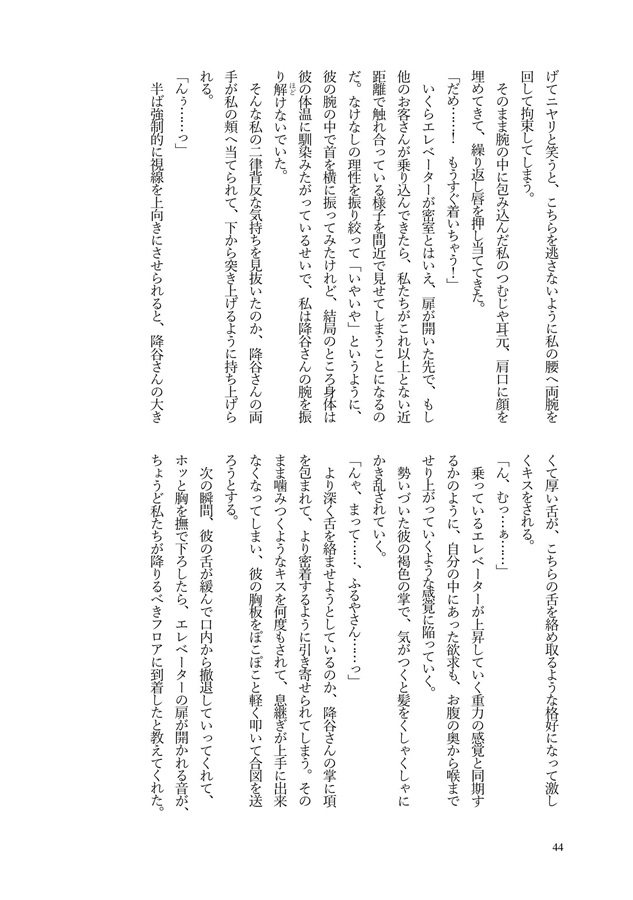 げてニヤリと笑うと、こちらを逃さないように私の腰へ両腕を
回して拘束してしまう。
そのまま腕の中に包み込んだ私のつむじや耳元、肩口に顔を
埋めてきて、繰り返し唇を押し当ててきた。
「だめ……！　もうすぐ着いちゃう！」
いくらエレベーターが密室とはいえ、扉が開いた先で、もし
他のお客さんが乗り込んできたら、私たちがこれ以上とない近
距離で触れ合っている様子を間近で見せてしまうことになるの
だ。なけなしの理性を振り絞って「いやいや」というように、
彼の腕の中で首を横に振ってみたけれど、結局のところ身体は
彼の体温に馴染みたがっているせいで、私は降谷さんの腕を振
り解けないでいた。
ほど
そんな私の二律背反な気持ちを見抜いたのか、降谷さんの両
手が私の頬へ当てられて、下から突き上げるように持ち上げら
れる。
「んぅ……っ」
半ば強制的に視線を上向きにさせられると、降谷さんの大き
くて厚い舌が、こちらの舌を絡め取るような格好になって激し
くキスをされる。
「ん、むっ…ぁ……」
乗っているエレベーターが上昇していく重力の感覚と同期す
るかのように、自分の中にあった欲求も、お腹の奥から喉まで
せり上がっていくような感覚に陥っていく。
勢いづいた彼の褐色の掌で、気がつくと髪をくしゃくしゃに
かき乱されていく。
「んゃ、まって……、ふるやさん……っ」
より深く舌を絡ませようとしているのか、降谷さんの掌に項
を包まれて、より密着するように引き寄せられてしまう。その
まま噛みつくようなキスを何度もされて、息継ぎが上手に出来
なくなってしまい、彼の胸板をぽこぽこと軽く叩いて合図を送
ろうとする。
次の瞬間、彼の舌が緩んで口内から撤退していってくれて、
ホッと胸を撫で下ろしたら、エレベーターの扉が開かれる音が、
ちょうど私たちが降りるべきフロアに到着したと教えてくれた。
44